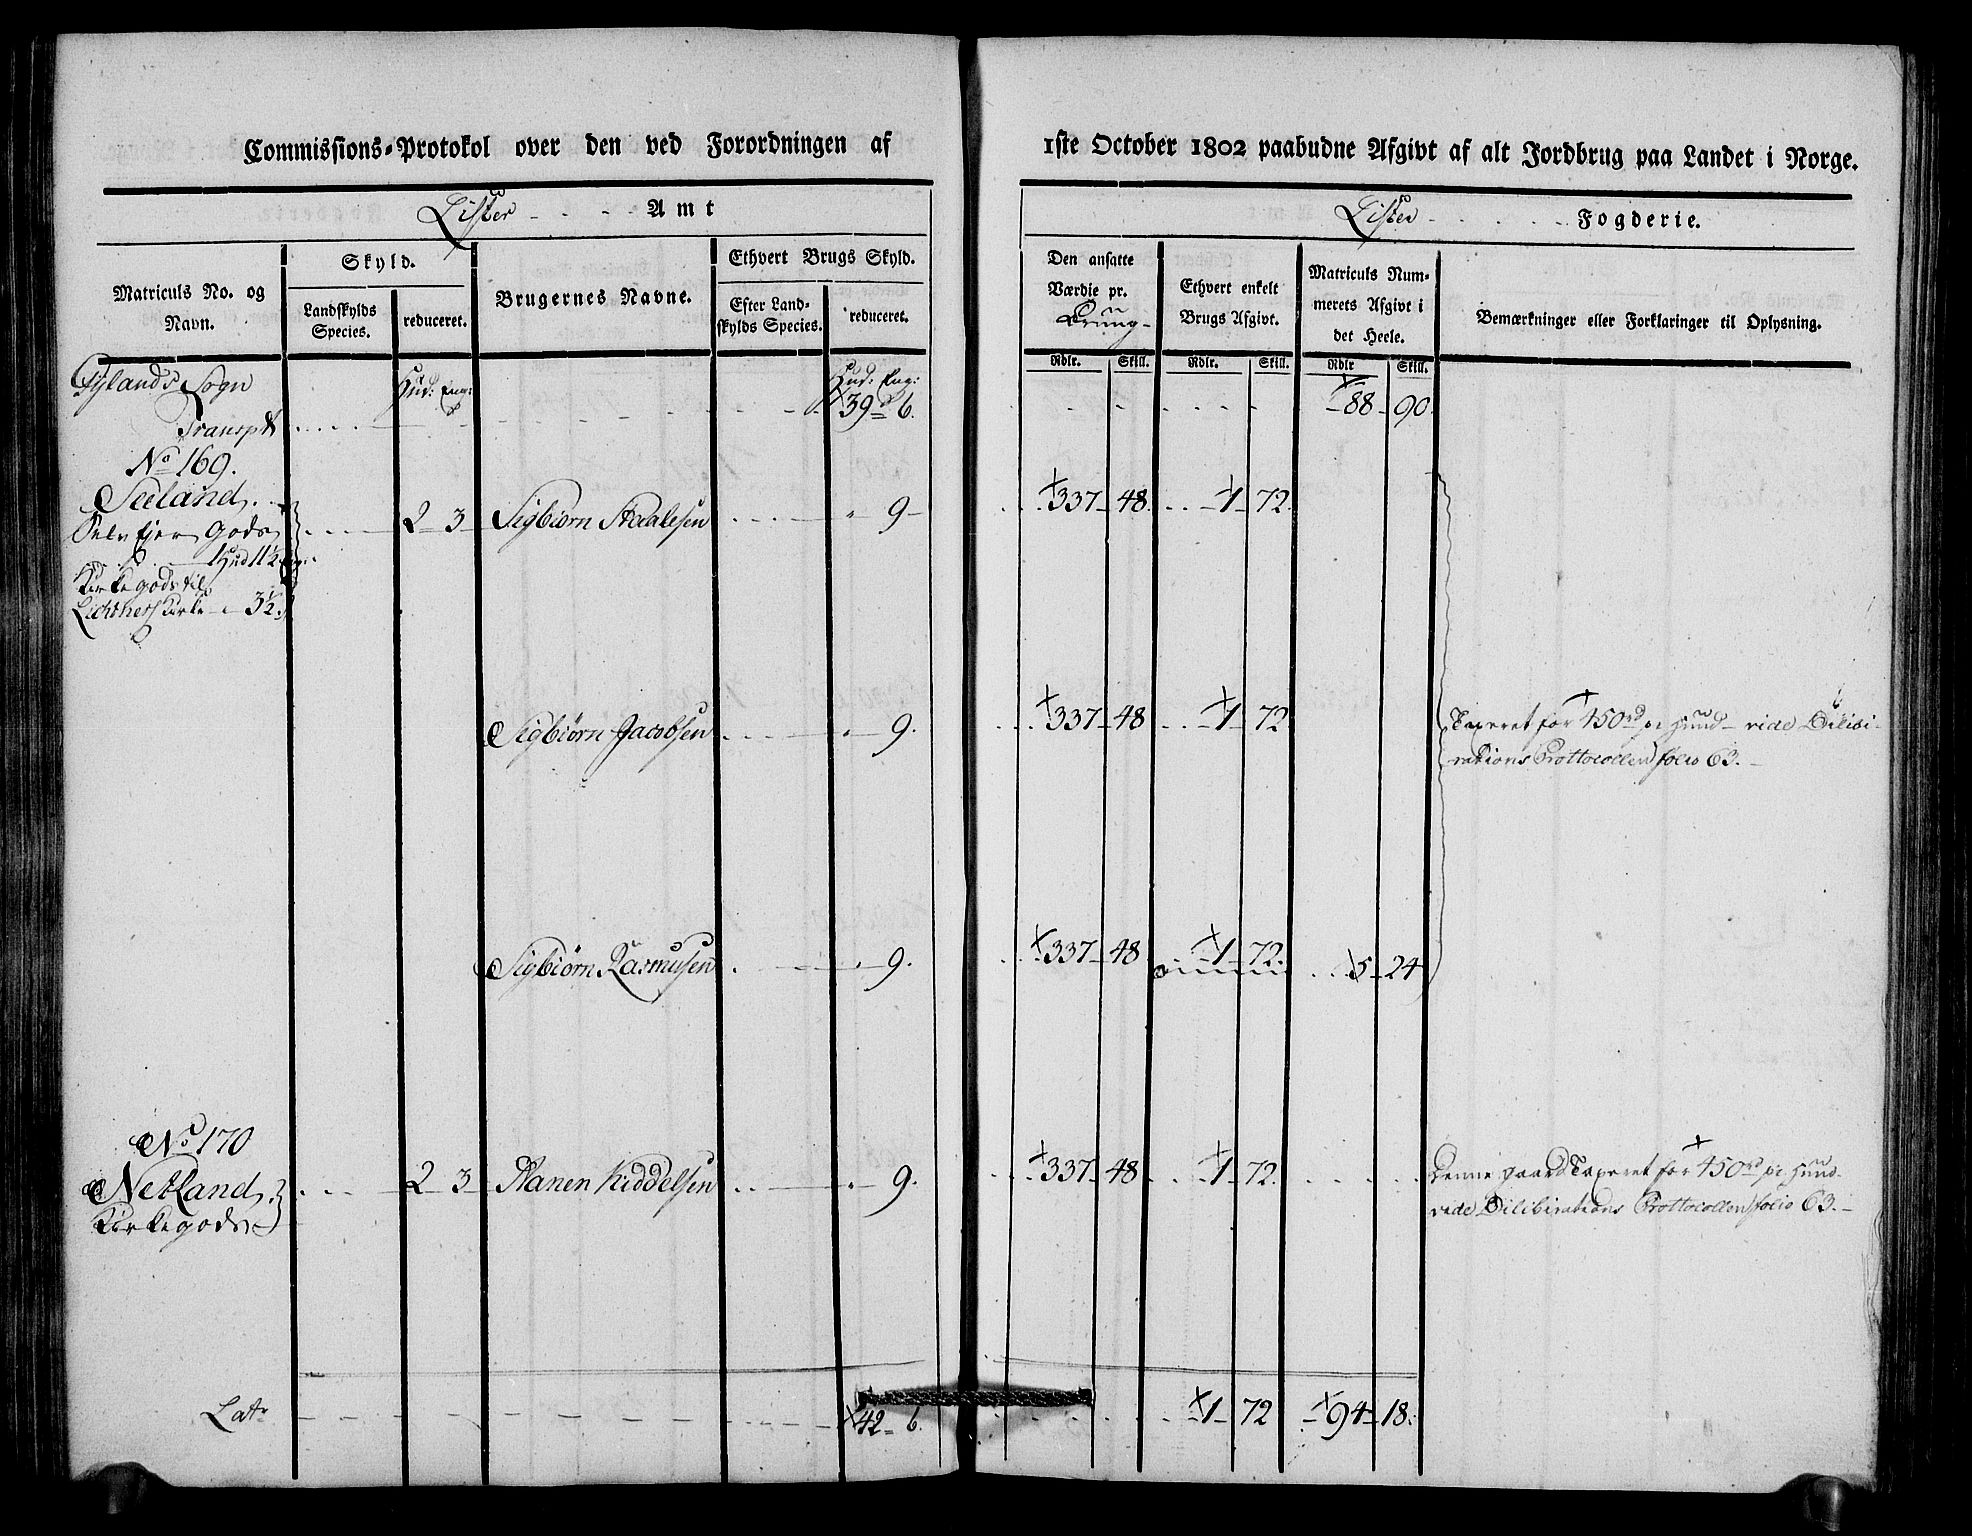 Commissions-Protokol over den ved Forordningen af
Lister - - - - Amt
Matriculs No. og Navn.
Skyld.
Landskylds Species.
reduceret.
Brugernes Navne.
Ethvert Brugs Skyld.
Efter Landskylds Species.
reduceret.
Sogn
Hud: Eng:
Hud: Eng:
Transpt 39 - 6.
No 169.
Seeland.
Selv Ejer Gods 2 3 Sigbiørn Staalesen - 9 -
1 Hud 11½ Eng:
Kirkegods til
Kirke - 3½
Sigbiørn Jacobsen - 9.
Sigbiørn Rasmusen - 9.
No 170
Netland. 2 3 Kiddelsen - 9.
Kirkegods
Latr 42 - 6.
1ste October 1802 paabudne Afgivt af alt Jordbrug paa Landet i Norge.
Lister - - - - Fogderie.
Den ansatte Værdie pr.
Ethvert enkelt Brugs Afgivt.
Matriculs Nummerets Afgivt i det Heele.
Bemærkninger eller Forklaringer til Oplysning.
Rdlr. Skill. Rdlr. Skill. Rdlr Skill.
88 - 90.
337 - 48. 1 72.
337 - 48 1 72. Taxeret for 450 rd pr Huud - vide Dilibi-
rations Prottocollen folio 63. -
337 - 48 1 72. 5 - 24
337 - 48 1 72. Denne gaard Taxeret for 450 rd pr Huud -
vide Dilibirations Prottocollen folio 63. -
1 72 94 - 18.